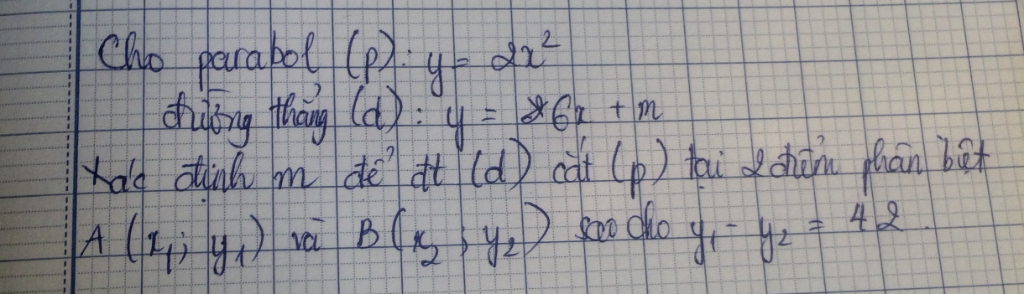 Cho parabol (p): y = 2x²
đường thẳng (d): y = 6x + m
Xác định m để đt (d) cắt (p) tại 2 điểm phân biệt
A (x₁; y₁) và B (x₂; y₂) sao cho y₁ - y₂ = 42.